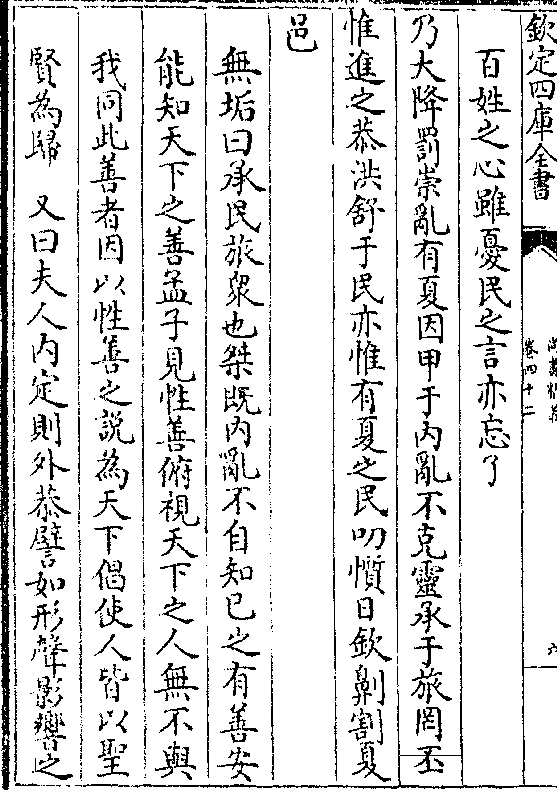 欽定四庫全書
卷四十二
六
百姓之心雖憂民之言亦忘了
乃大降罰崇亂有夏因甲于内亂不克靈承于旅罔丕
惟進之恭洪舒于民亦惟有夏之民叨懫日欽劓割夏
邑
無垢曰承民旅衆也桀既内亂不自知已之有善安
能知天下之善孟子見性善俯視天下之人無不與
我同此善者因以性善之說為天下倡使人皆以聖
賢為歸　又曰夫人内定則外恭譬如形聲影響之